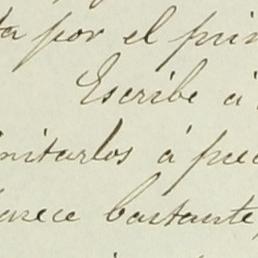 por el prin
Escribe á
nitarlos á pue
arece bastante,